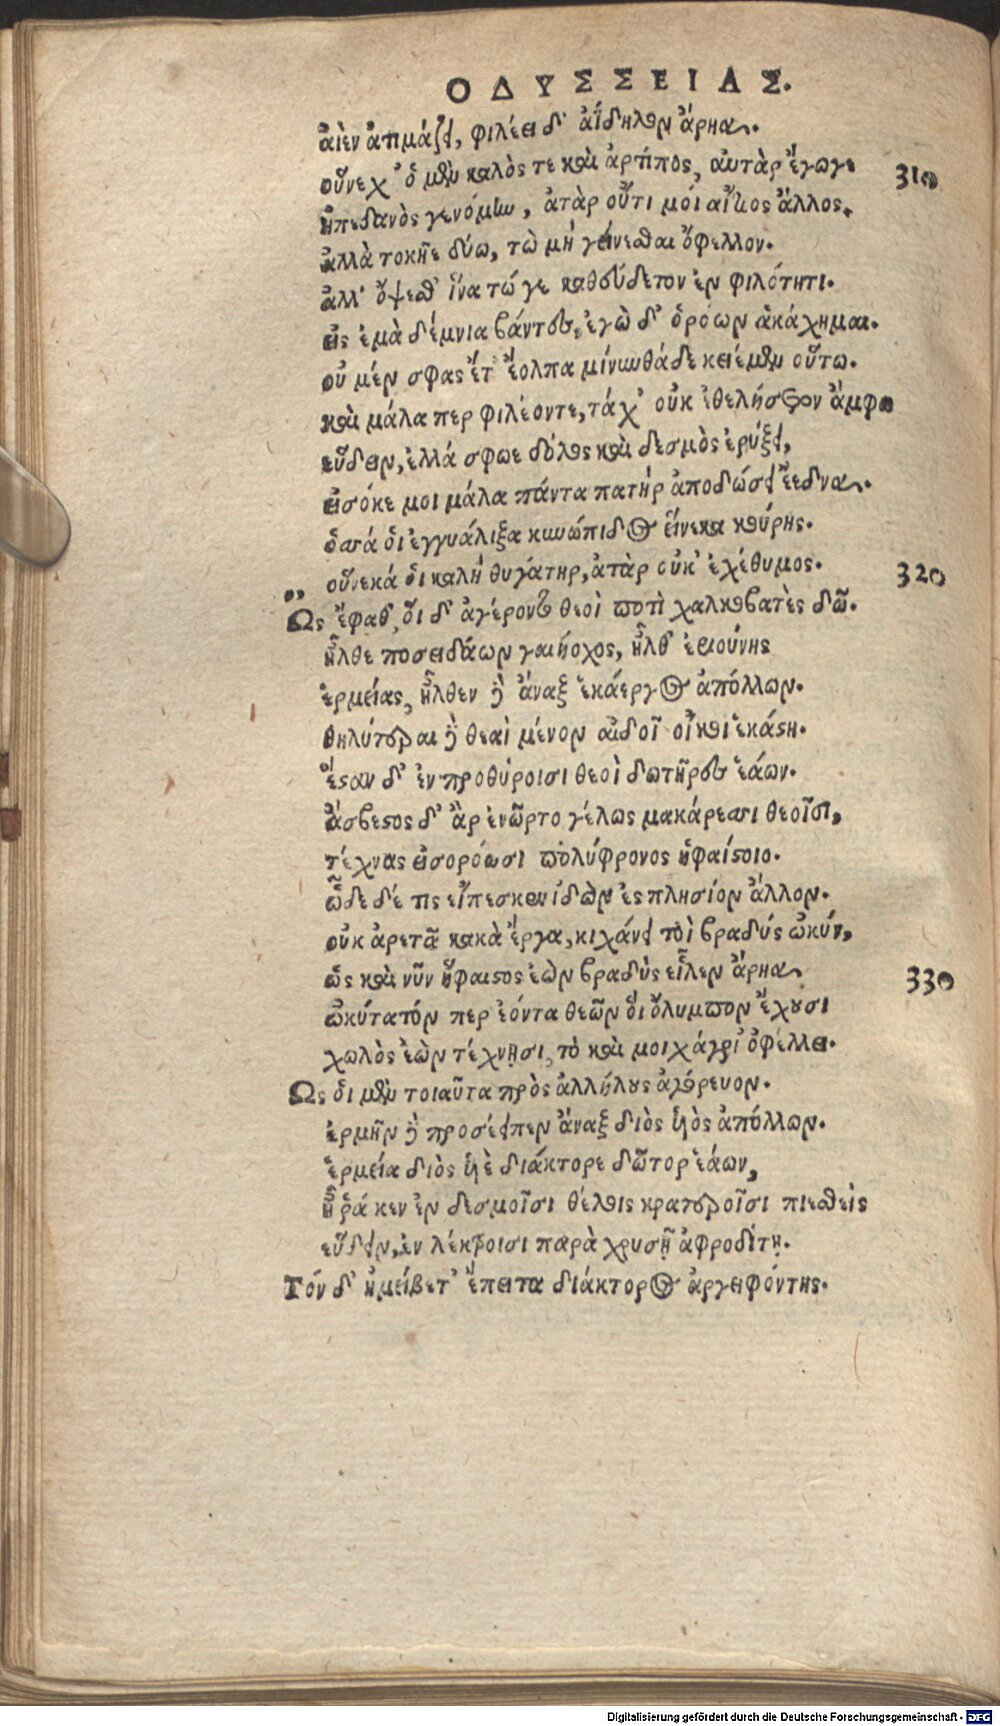 ΟΔΥΣΣΕΙΑΣ.
ἀιὲν ἀτιμάζει, φιλέει δ' ἀΐδηλον ἄρηα.
οὕνεχ' ὁ μὲν καλὸς τε καὶ ἀρτίπος, ἀυτὰρ ἔγωγε 310
ἠπεδανὸς γενόμην, ἀτὰρ οὔτι μόι αἴτιος ἄλλος.
ἀλλὰ τοκῆε δύω, τὼ μὴ γείνεσθαι ὄφελλον.
ἀλλ' ὄψεσθ' ἵνα τώ γε καθεύδετον ἐν φιλότητι.
εἰς ἐμὰ δέμνια βάντες, ἐγὼ δ' ὁρόων ἀκάχημαι.
οὐ μέν σφας ἔτ' ἔολπα μίνυνθάδε κειέμεν οὕτω.
καὶ μάλα περ φιλέοντε, τάχ' οὐκ ἐθελήσετον ἄμφω
εὕδειν, ἀλλά σφωε δόλος καὶ δεσμὸς ἐρύξει,
εἰσόκε μοι μάλα πάντα πατὴρ ἀποδώσει ἔεδνα.
ὅσσά ὁι ἐγγυάλιξα κυνώπιδος εἵνεκα κούρης.
οὕνεκά ὁι καλὴ θυγάτηρ, ἀτὰρ οὐκ' ἐχέθυμος. 320
Ὣς ἔφαθ', ὅι δ' ἀγέροντο θεοὶ ποτὶ χαλκοβατὲς δῶ.
ἦλθε ποσειδάων γαιήοχος, ἦλθ' ἐριούνης
ἑρμείας, ἦλθεν δὲ ἄναξ ἑκάεργος ἀπόλλων.
θηλύτεραι δὲ θεαὶ μένον αἰδοῖ οἴκοι ἑκάστη.
ἔσταν δ' ἐν προθύροισι θεοὶ δωτῆρες ἐάων.
ἄσβεστος δ' ἂρ ἐνῶρτο γέλως μακάρεσσι θεοῖσι,
τέχνας εἰσορόωσι πολύφρονος ἡφαίστοιο.
ὧδε δέ τις εἴπεσκεν ἰδὼν ἐς πλησίον ἄλλον.
οὐκ ἀρετᾶ κακὰ ἔργα, κιχάνει τοὶ βραδύς ὠκύν,
ὡς καὶ νῦν ἥφαιστος ἐὼν βραδὺς εἷλεν ἄρηα 330
ὠκύτατόν περ ἐόντα θεῶν ὅι ὄλυμπον ἔχουσι
χωλὸς ἐὼν τέχνῃσι, τὸ καὶ μοιχάγρι' ὀφέλλει.
Ὣς ὁι μὲν τοιαῦτα πρὸς ἀλλήλους ἀγόρευον.
ἑρμῆν δὲ προσέειπεν ἄναξ διὸς υἱὸς ἀπόλλων.
ἑρμεία διὸς υἱὲ διάκτορε δῶτορ ἐάων,
ἦ ῥά κεν ἐν δεσμοῖσι θέλοις κρατεροῖσι πιεσθεὶς
εὕδειν, ἐν λέκτροισι παρὰ χρυσῇ ἀφροδίτῃ.
Τόν δ' ἠμείβετ' ἔπειτα διάκτορος ἀργειφόντης.
Digitalisierung gefördert durch die Deutsche Forschungsgemeinschaft - DFG